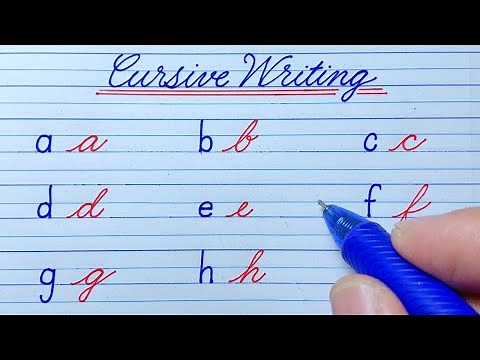 Cursive Writing
a a b b c c
d d e e f f
g g h h